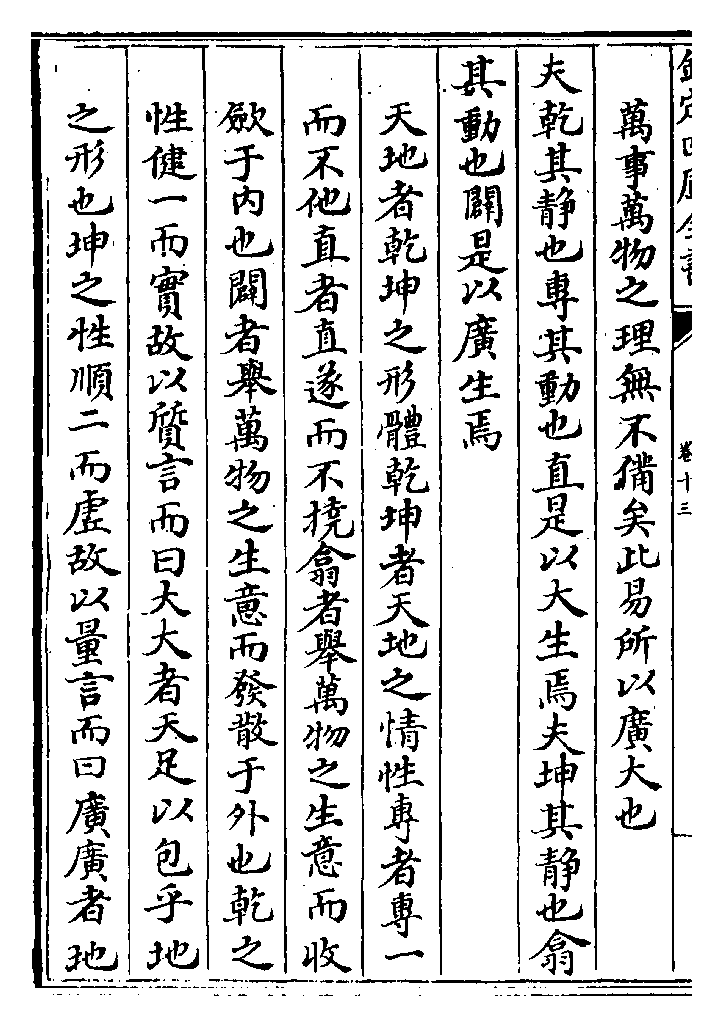 欽定四庫全書
卷十三
萬事萬物之理無不備矣此易所以廣大也
夫乾其静也專其動也直是以大生焉夫坤其静也翕
其動也闢是以廣生焉
天地者乾坤之形體乾坤者天地之情性專者專一
而不他直者直遂而不撓翕者舉萬物之生意而收
歛于内也闢者舉萬物之生意而發散于外也乾之
性健一而實故以質言而曰大大者天足以包乎地
之形也坤之性順二而虛故以量言而曰廣廣者地